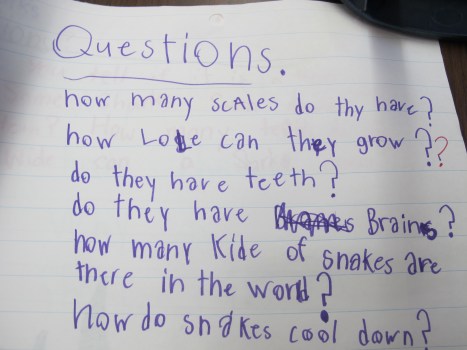 Questions.
how many scAles do thy have?
how Lole can they grow??
do they have teeth?
do they have Brains?
how many Kide of snakes are
there in the world?
how do snakes cool down?